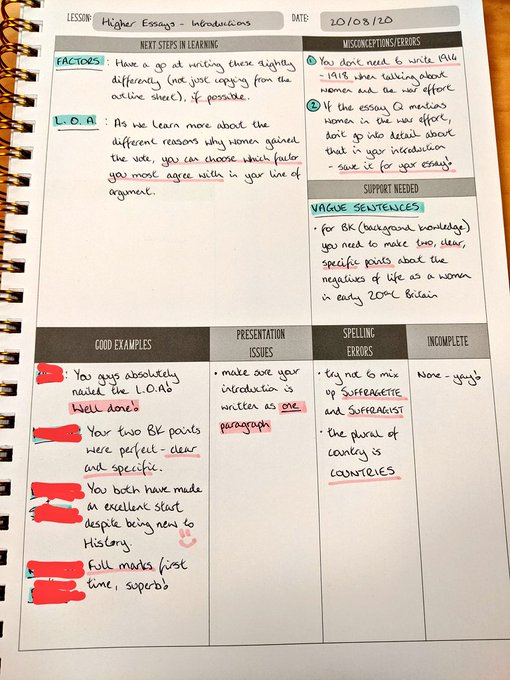 LESSON: Higher Essays - Introductions DATE: 20/08/20
NEXT STEPS IN LEARNING
FACTORS: Have a go at writing these slightly
differently (not just copying from the
outline sheet), if possible.
L.O.A: As we learn more about the
different reasons why women gained
the vote, you can choose which factor
you most agree with in your line of
argument.
MISCONCEPTIONS/ERRORS
① You don't need to write 1914
- 1918 when talking about
women and the war effort
② If the essay Q mentions
women in the war effort,
don't go into detail about
that in your introduction
- save it for your essay!
SUPPORT NEEDED
VAGUE SENTENCES
• for BK (background knowledge)
you need to make two, clear,
specific points about the
negatives of life as a women
in early 20th C Britain
GOOD EXAMPLES
: You guys absolutely
nailed the L.O.A!
Well done!
Your two BK points
were perfect - clear
and specific.
You both have made
an excellent start
despite being new to
History.
Full marks first
time, superb!
PRESENTATION
ISSUES
• make sure your
introduction is
written as one
paragraph
SPELLING
ERRORS
• try not to mix
up SUFFRAGETTE
and SUFFRAGIST
• the plural of
country is
COUNTRIES
INCOMPLETE
None - yay!